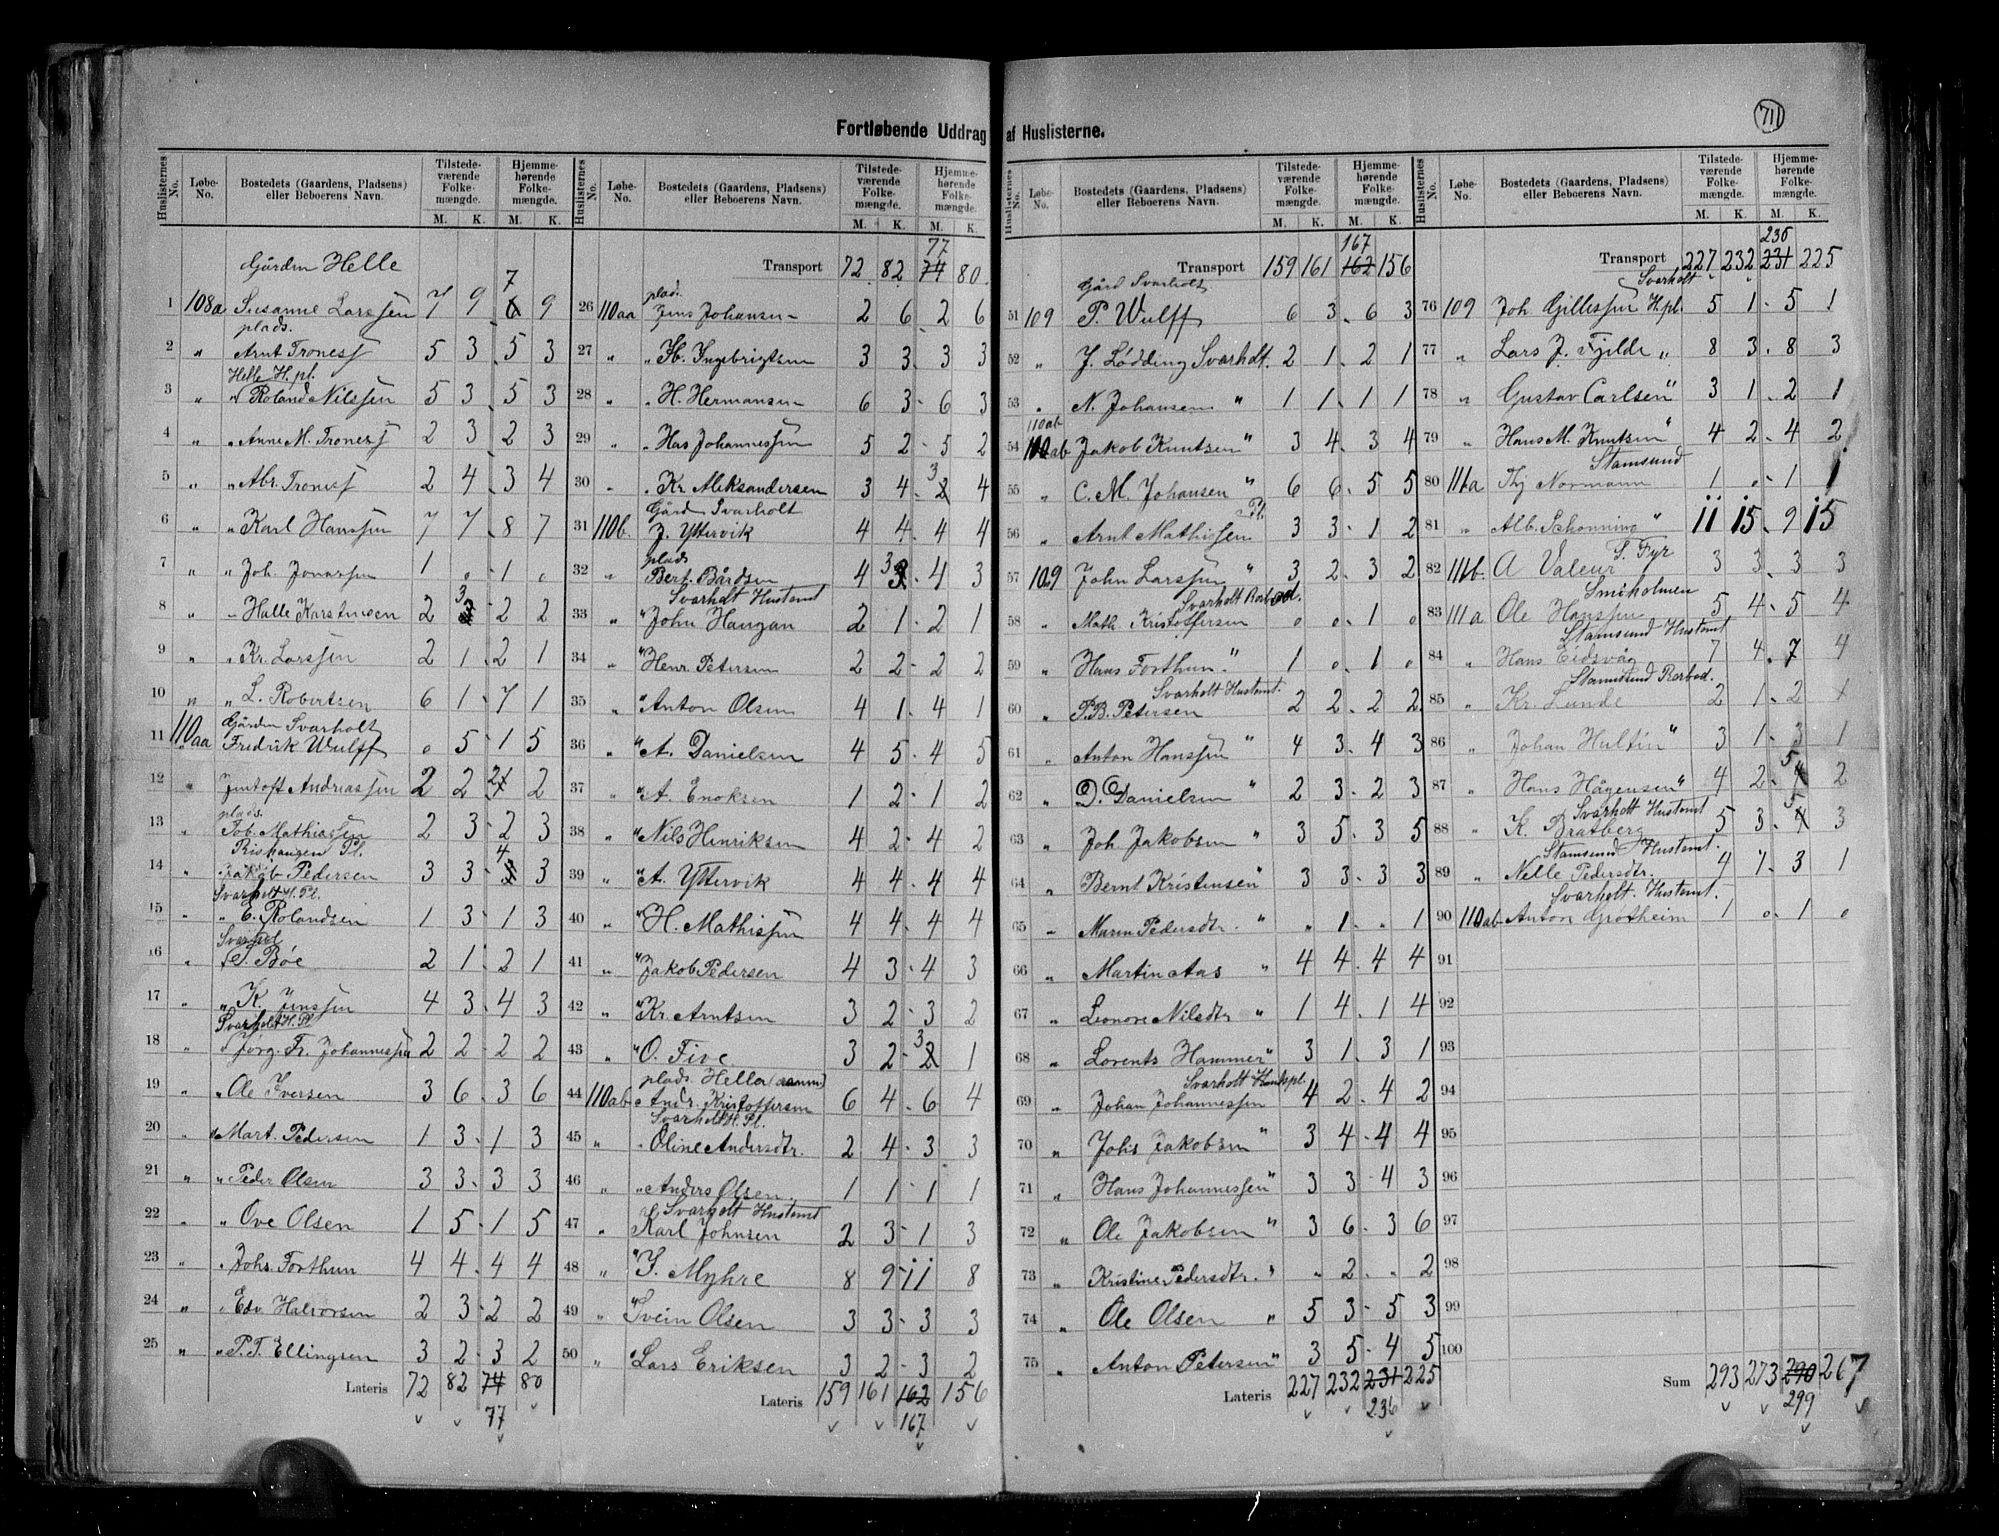 711
Fortløbende Uddrag af Huslisterne.
Huslisternes No. Løbe-No. Bostedets (Gaardens, Pladsens) eller Beboerens Navn. Tilstedeværende Folkemængde. M. K. Hjemmehørende Folkemængde. M. K.
Gården Helle
7
1 108a Susanne Larssen 7 9 6 9
plads.
2 " Arnt Tronesf 5 3 5 3
Helle H. pl.
3 " " Roland Nilssen 5 3 5 3
4 " " Anne M. Tronesf 2 3 2 3
5 " " Abr. Tronesf 2 4 3 4
6 " " Karl Hanssen 7 7 8 7
7 " " Joh. Jonassen 1 0 1 0
3
8 " " Halle Karstensen 2 2 2
9 " " Kr. Larssen 2 1 2 1
10 " " L. Robertsen 6 1 7 1
Gården Svarholt
11 110aa Fredrik Wulff 0 5 1 5
12 " Jentoft Andreassen 2 2 2 2
plads.
13 " Tob. Mathiassen 2 3 2 3
Rishaugen Pl.
4
14 " Jakob Pedersen 3 3 3 3
Svarholt H. Pl.
15 " " E. Rolandsen 1 3 1 3
16 " S. Bøe 2 1 2 1
17 " " K. Jenssen 4 3 4 3
Svarholt H. Pl
18 " Jørg. Fr. Johannessen 2 2 2 2
19 " " Ole Iversen 3 6 3 6
20 " " Mart. Pedersen 1 3 1 3
21 " " Peder Olsen 3 3 3 3
22 " " Ove Olsen 1 5 1 5
23 " " Johs. Forthun 4 4 4 4
24 " " Edv. Halvorsen 2 3 2 2
25 " " P. T. Ellingsen 3 2 3 2
Lateris 72 82 74 80
77
Huslisternes No. Løbe-No. Bostedets (Gaardens, Pladsens) eller Beboerens Navn. Tilstedeværende Folkemængde. M. K. Hjemmehørende Folkemængde. M. K.
77
Transport 72 82 74 80
plads.
26 110aa Jens Johansen 2 6 2 6
27 " " H. Ingebrigtsen 3 3 3 3
28 " " H. Hermansen 6 3 6 3
29 " " Has Johannessen 5 2 5 2
3
30 " " Kr. Aleksandersen 3 4 2 4
Gård Svarholt
31 110b. J. Yttervik 4 4 4 4
plads
3
32 " Bert. Bårdsen 4 3 4 3
Svarholt Hustomt
33 " " John Haugan 2 1 2 1
34 " " Henr. Petersen 2 2 2 2
35 " " Anton Olsen 4 1 4 1
36 " " A. Danielsen 4 5 4 5
37 " " A. Enoksen 1 2 1 2
38 " " Nils Henriksen 4 2 4 2
39 " " A. Yttervik 4 4 4 4
40 " " H. Mathissen 4 4 4 4
41 " " Jakob Pedersen 4 3 4 3
42 " " Kr. Arntsen 3 2 3 2
3
43 " " O. Five 3 2 2 1
plads Helle
44 110ab " Andr. Kristoffersen 6 4 6 4
Svarholt H. Pl.
45 " " Oline Andersdtr. 2 4 3 3
46 " " Anders Olsen 1 1 1 1
Svarholt Hustomt
47 " Karl Johnsen 2 3 1 3
48 " " S. Myhre 8 9 11 8
49 " " Svein Olsen 3 3 3 3
50 " " Lars Eriksen 3 2 3 2
Lateris 159 161 162 156
167
Huslisternes No. Løbe-No. Bostedets (Gaardens, Pladsens) eller Beboerens Navn. Tilstedeværende Folkemængde. M. K. Hjemmehørende Folkemængde. M. K.
167
Transport 159 161 162 156
Gård Svarholt
51 109 P. Wulff 6 3 6 3
52 " J. Lødding Svarholt. 2 1 2 1
53 " N. Johansen " 1 1 1 1
110ab
54 110ab Jakob Knutsen " 3 4 3 4
55 " C. M. Johansen " 6 6 5 5
Pl.
56 " Arnt Mathissen 3 3 1 2
57 109 John Larssen " 3 2 3 2
Svarholt Rorbod.
58 " Math. Kristoffersen 0 0 1 0
59 " Hans Forthun " 1 0 1 0
Svarholt Hustomt.
60 " P. B. Petersen 2 2 2 2
61 " Anton Hanssen " 4 3 4 3
62 " D. Danielsen " 2 3 2 3
63 " Joh. Jakobsen " 3 5 3 5
64 " Bernt Kristensen " 3 3 3 3
65 " Maren Pedersdtr. " " 1 " 1
66 " Martin Aas " 4 4 4 4
67 " Leonore Nilsdtr " 1 4 1 4
68 " Lorents Hammer " 3 1 3 1
69 " Johan Johannessen 4 2 4 2
70 " Johs Jakobsen " 3 4 4 4
71 " Hans Johannessen " 3 3 4 3
72 " Ole Jakobsen " 3 6 3 6
73 " Kristine Pedersdtr. " " 2 " 2
74 " Ole Olsen " 5 3 5 3
75 " Anton Petersen " 3 5 4 5
Lateris 227 232 231 225
236
Huslisternes No. Løbe-No. Bostedets (Gaardens, Pladsens) eller Beboerens Navn. Tilstedeværende Folkemængde. M. K. Hjemmehørende Folkemængde. M. K.
236
Transport 227 232 231 225
Svarholt
76 109 Joh Gillessen H.pl. 5 1 5 1
77 " Lars J. Fjelde " 8 3 8 3
78 " Gustav Carlsen " 3 1 2 1
79 " Hans M. Knutsen " 4 2 4 2
Stamsund
80 111a Thj Normann 1 0 1 1
81 " Alb. Schønning " 11 15 9 15
S. Fyr
82 111b. A Valeur 3 3 3 3
Småholmen
83 111a Ole Hanssen 5 4 5 4
Stamsund Hustomt
84 " Hans Eidsvåg 7 4 7 4
Stamsund Rorbod.
85 " Kr. Lunde 2 1 2 1
86 " Johan Hultin " 3 1 3 1
5
87 " Hans Hågensen " 4 2 4 2
Svarholt Hustomt
5
88 " K. Bratberg 5 3 4 3
Stamsund Hustomt.
89 " Nelle Pedersdtr. 4 1 3 1
Svarholt. Hustomt.
90 110ab Anton Grotheim 1 0 1 0
91
92
93
94
95
96
97
98
99
100
Sum 293 273 290 267
299